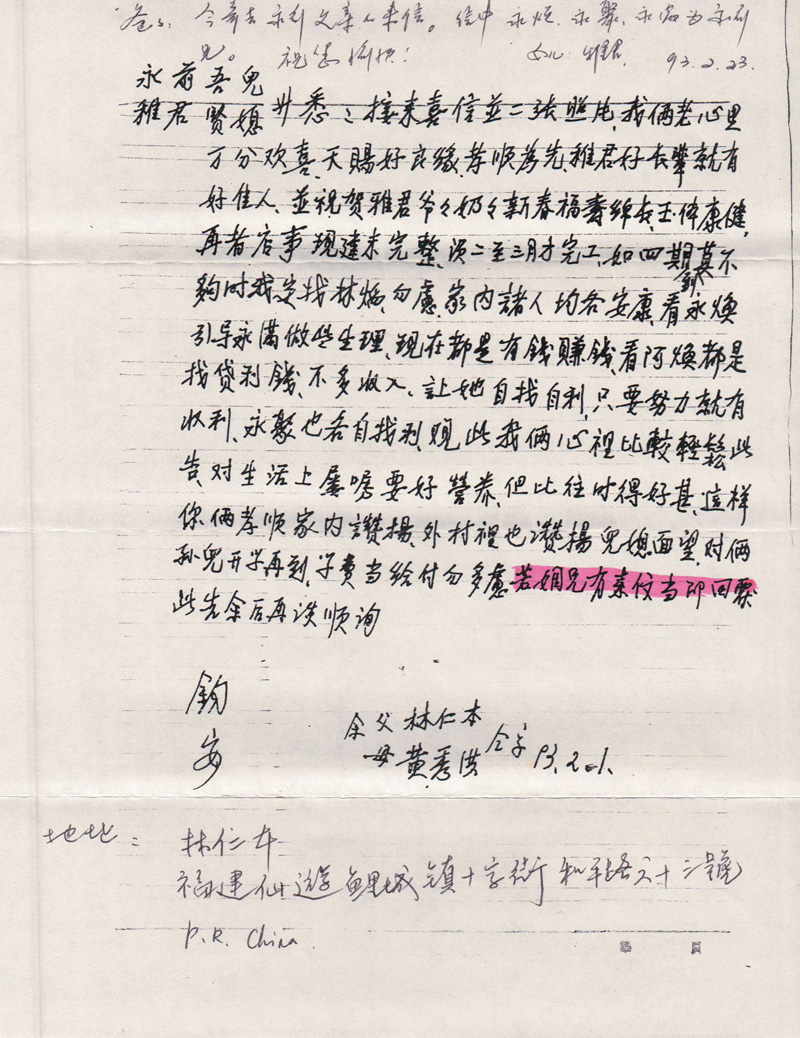 爸爸: 今寄去永前父亲人来信。信中 永煥、永聚、永滿为永前
兄。 祝您愉快! 女儿 雅君 93.2.23.
永前吾兒
雅君賢媳 廾悉: 接来喜信並二张照片, 我俩老心里
万分欢喜, 天賜好良缘, 孝順為先, 雅君好長輩就有
好佳人, 並祝贺雅君爷々奶々新春福寿绵長, 玉体康健,
再者店事现建未完整, 须二至三月才完工, 如四期款不
夠时我定找林焰, 勿慮, 家内諸人均各安康, 看永煥
引导永满做些生理, 现在都是有錢賺錢, 看阿煥都是
找贷利錢, 不多收入, 让她自找自利, 只要努力就有
收利, 永聚也各自找利, 观此我俩心裡比較輕鬆, 此
告, 对生活上屡嘱要好营养, 但比往时得好甚, 這样
你俩孝順家内讚揚, 外村裡也讚揚兒媳面望, 对俩
孙兒开学再到, 学费当给付勿多慮, 若姻兄有来仪当即回票
此先余后再谈 顺询
鈞
安
余父 林仁本
母 黄秀洪 仝字 93.2.1.
地址: 林仁本
福建仙遊鯉城镇十字街和平路六十三號
P.R. China.
第 頁